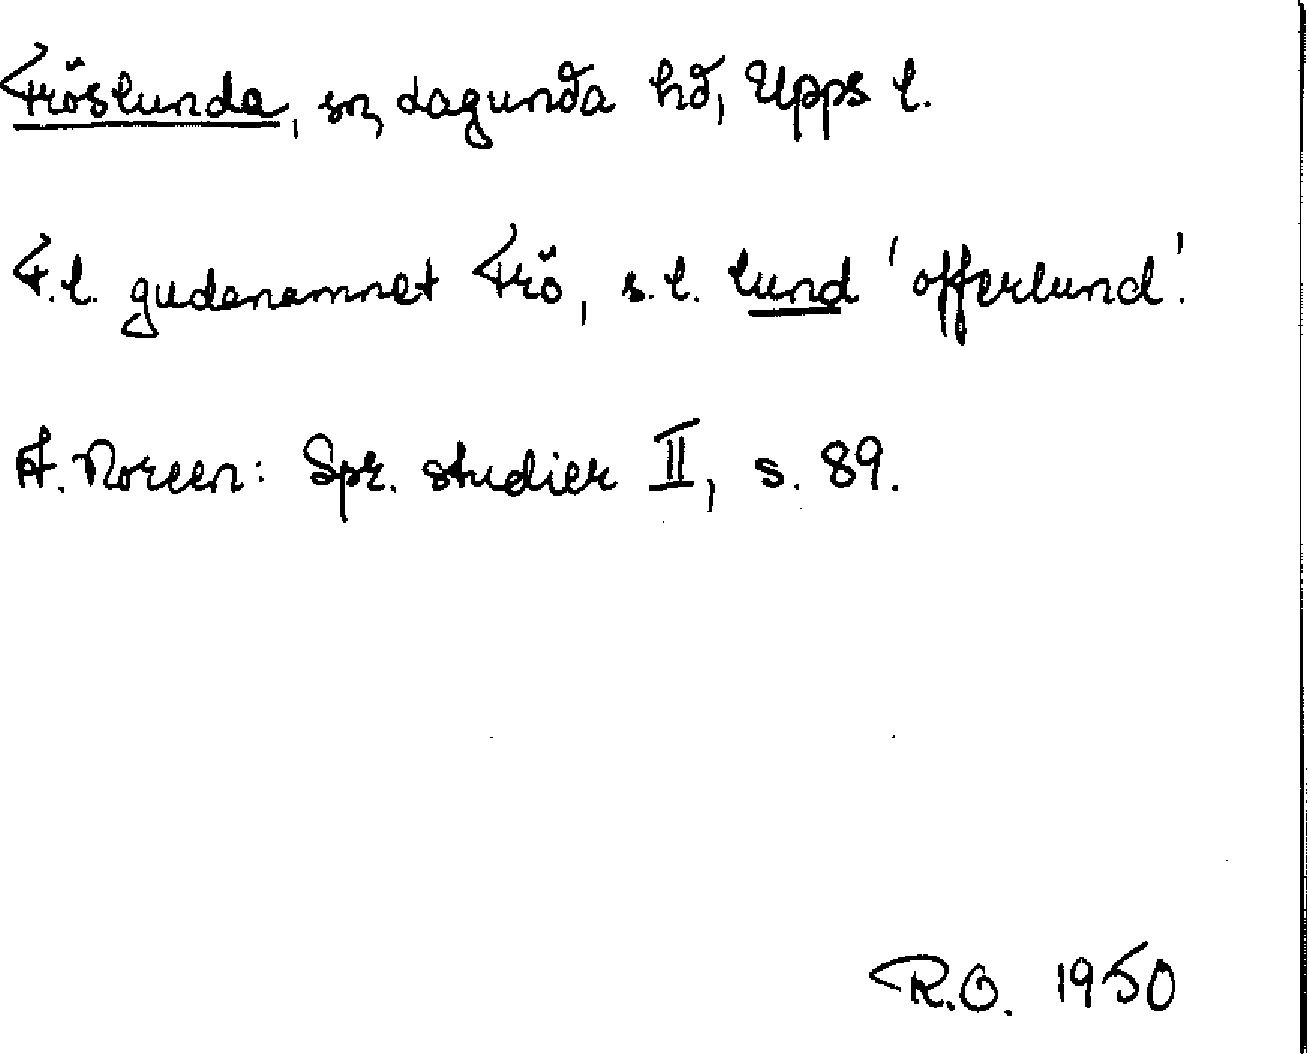 Fröslunda, sn, Lagunda hd, Upps l.
F.l. gudanamnet Frö, s.l. lund 'offerlund'.
A. Noreen: Spr. studier II, s. 89.
R.O. 1950